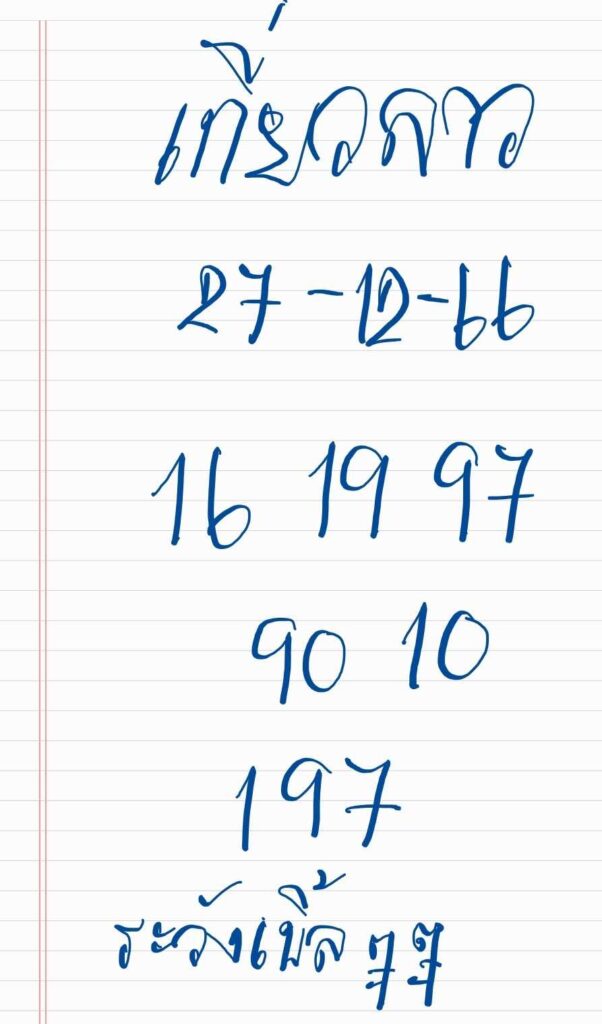 เที่ยวลาว
27-12-66
16 19 97
90 10
197
ระวังเบิ้ล ๆๆ